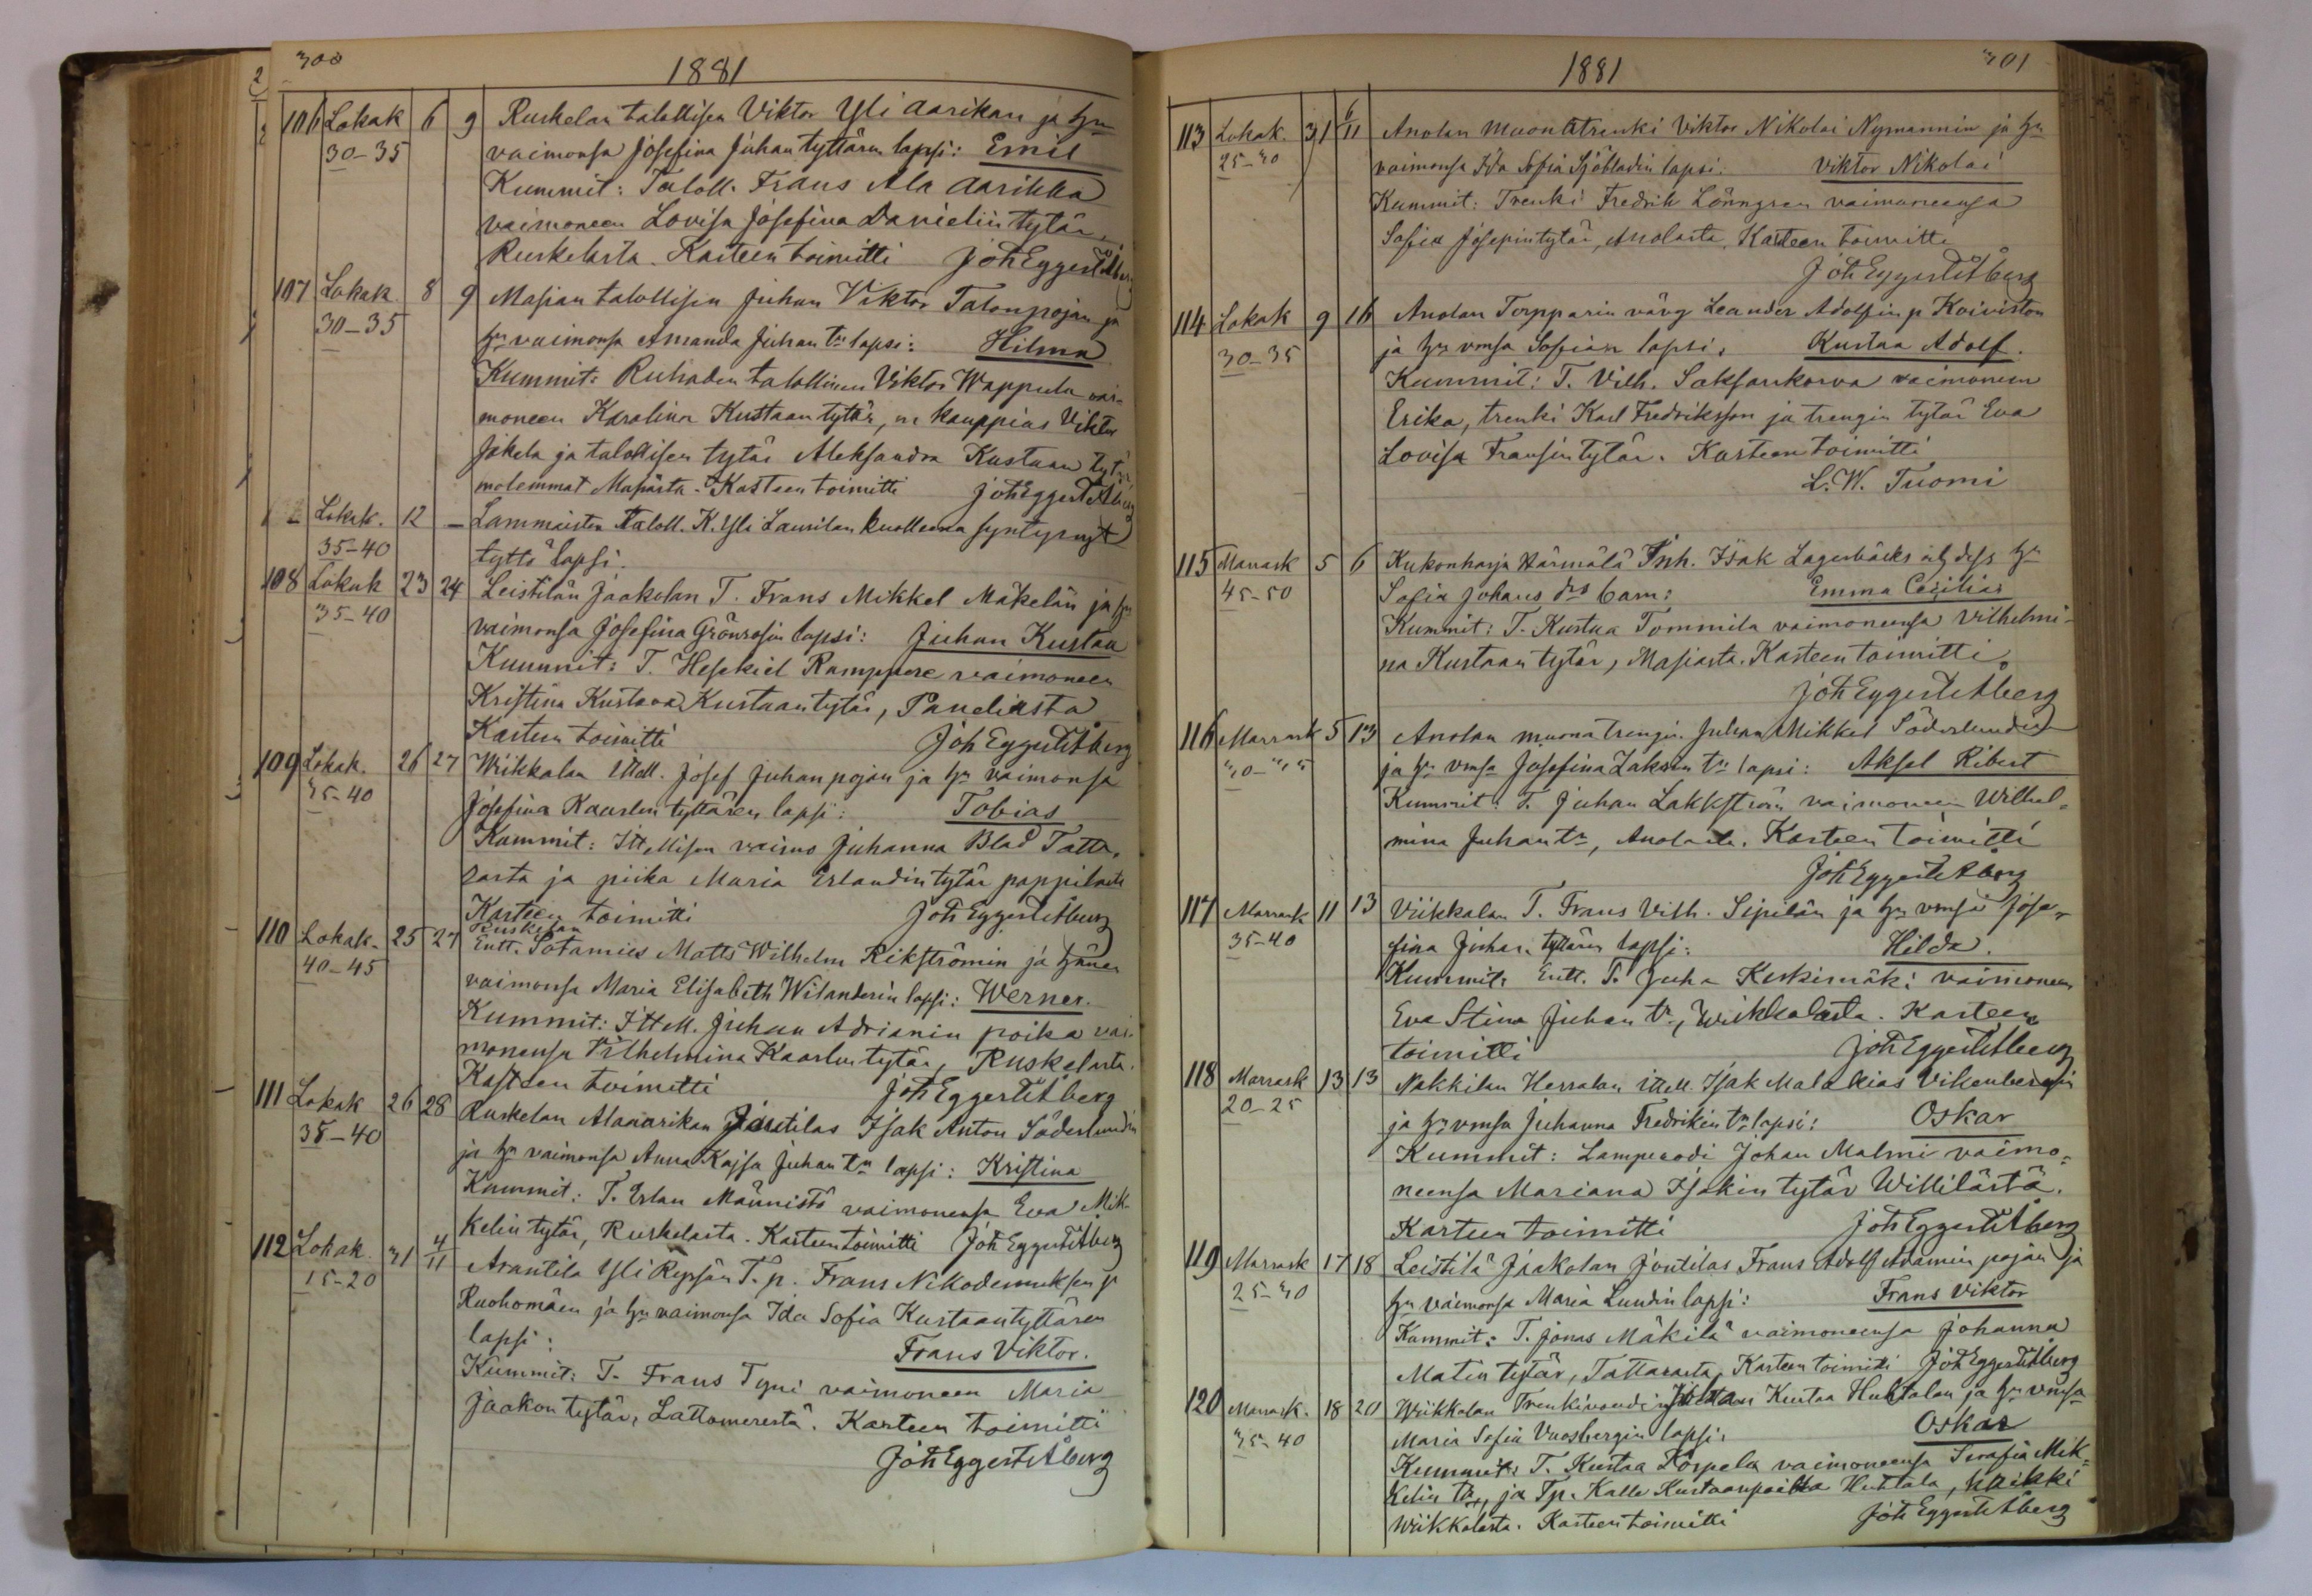 300
1881
106 Lokak 6 9 Ruskelan talollisen Viktor Yli Aarikan ja hn
30-35 vaimonsa Josefina Juhan tyttären lapsi: Emil
Kummit: Taloll. Frans Ala Aarikka
vaimoneen Lovisa Josefina Danielin tytär
Ruskelasta. Kasteen toimitti Joh Eggert Åberg
107 Lokak 8 9 Masian talollisen Juhan Viktor Talonpojan ja
30-35 hn vaimonsa Amanda Juhan tn lapsi: Hilma
Kummit: Ruhaden talollinen Viktor Wappula vai-
moneen Karolina Kustaan tytär, kauppias Viktor
Jokela ja talollisen tytär Aleksandra Kustaan tytär
molemmat Masiasta. Kasteen toimitti Joh Eggert Åberg
Lokak. 12 - Lammaisten Taloll. K. Yli Laurilan kuolleena syntynyt
35-40 tyttö lapsi.
108 Lokak 23 24 Leistilän Jaakolan T. Frans Mikkel Mäkelän ja hn
35-40 vaimonsa Josefina Grönroosin lapsi: Juhan Kustaa
Kummit: T. Heskiel Ramppere vaimoneen
Kristina Kustava Kustaantytär, Paneliasta
Kasteen toimitti Joh Eggert Åberg
109 Lokak. 26 27 Wiikkalan Ittell. Josef Juhanpojan ja hn vaimonsa
35-40 Josefina Kaarlen tyttären lapsi: Tobias
Kummit: Ittellisen vaimo Juhanna Blad Tatta-
rasta ja piika Maria Erlandin tytär pappilasta
Kasteen toimitti Joh Eggert Åberg
Ruskelan
110 Lokak. 25 27 Entt. Sotamies Matts Wilhelm Rikströmin ja hänen
40-45 vaimonsa Maria Elisabeth Wilanderin lapsi: Werner.
Kummit: Ittell. Juhan Adrianin poika vai-
monensa Vilhelmina Kaarlen tytär, Ruskelasta.
Kasteen toimitti Joh Eggert Åberg
111 Lokak 26 28 Ruskelan Alaaarikan Joutilas Isak Anton Söderlundin
35-40 ja hn vaimonsa Anna Kajsa Juhan tn lapsi: Kristina
Kummit: T. Erlan Männistö vaimonensa Eva Mik-
kelin tytär, Ruskelasta. Kasteen toimitti Joh Eggert Åberg
112 Lokak. 31 4/11 Arantila Yli Repsän T.p. Frans Nikodemuksen p
15-20 Ruohomäen ja hn vaimonsa Ida Sofia Kustaantyttären
lapsi: Frans Viktor.
Kummit: T. Frans Tyni vaimoneen Maria
Jaakon tytär, Lattomerestä. Kasteen toimitti
Joh Eggert Åberg
301
1881
113 Lokak. 31 6/11 Anolan muonatrenki Viktor Nikolai Nymannin ja hn
25-30 vaimonsa Ida Sofia Sjöbladin lapsi: Viktor Nikolai
Kummit: Trenki Fredrik Lönngren vaimoneensa
Sofia Josepintytär, Anolasta, Kasteen toimitti
Joh Eggert Åberg
114 Lokak 9 16 Anolan Torpparin vävy Leander Adolfin p Koiviston
30-35 ja hn vmsa Sofian lapsi, Kustaa Adolf.
Kummit: T. Vilh. Saksankorva vaimoneen
Erika, trenki Karl Fredriksson ja trengin tytär Eva
Lovisa Fransin tytär. Kasteen toimitti
L. W. Tuomi
115 Marrask 5 6 Kukonharja Härmälä Inh. Isak Lagerbäcks ch dess hu
45-50 Sofia Johans drs barn: Emma Cecilia
Kummit: T. Kustaa Tommila vaimoneensa Vilhelmi-
na Kustaan tytär, Masiasta. Kasteen toimitti
Joh Eggert Åberg
116 Marrask 5 13 Anolan muonatrengin Juhan Mikkel Söderlundin
30-35 ja hn vmsa Josefina Isaksin tn lapsi: Aksel Ribert
Kummit: T. Juhan Lakkström vaimoneen Wilhel-
mina Juhan tr, Anolasta. Kasteen toimitti
Joh Eggert Åberg
117 Marrask 11 13 Viikkalan T. Frans Vilh. Sipilän ja hn vmsa Jose-
35-40 fina Juhan tyttären lapsi: Hilda.
Kummit: Entt. T. Juha Keskimäki vaimoneen
Eva Stina Juhan tr, Wiikkalasta. Kasteen
toimitti Joh Eggert Åberg
118 Marrask 13 13 Nakkilan Herralan ittell. Isak Malakias Vikenbergin
20-25 ja hn vmsa Juhanna Fredrikin tn lapsi: Oskar
Kummit: Lampuodi Johan Malmi vaimo-
neensa Mariana Isakin tytär Willilästä.
Kasteen toimitti Joh Eggert Åberg
119 Marrask 17 18 Leistilä Jaakolan Joutilas Frans Adolf Adamin pojan ja
25-30 hn vaimonsa Maria Lundin lapsi: Frans Viktor
Kummit: T. Jonas Mäkilä vaimoneensa Johanna
Matin tytär, Tattarasta, Kasteen toimitti Joh Eggert Åberg
120 Marrask. 18 20 Wiikkalan Trenkivoudin Johan Kustaa Huhtalan ja hn vmsa
35-40 Maria Sofia Vuosbergin lapsi, Oskar
Kummit: T. Kustaa Torpela vaimoneensa Serafia Mik-
kelin tr, ja Tp. Kalle Kustaanpoika Huhtala, kaikki
Wiikkalasta. Kasteen toimitti Joh Eggert Åberg